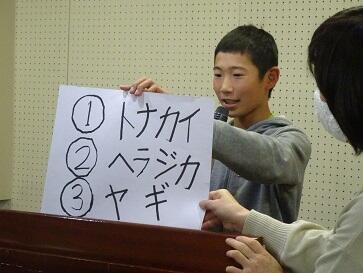 ① トナカイ
② ヘラジカ
③ ヤギ